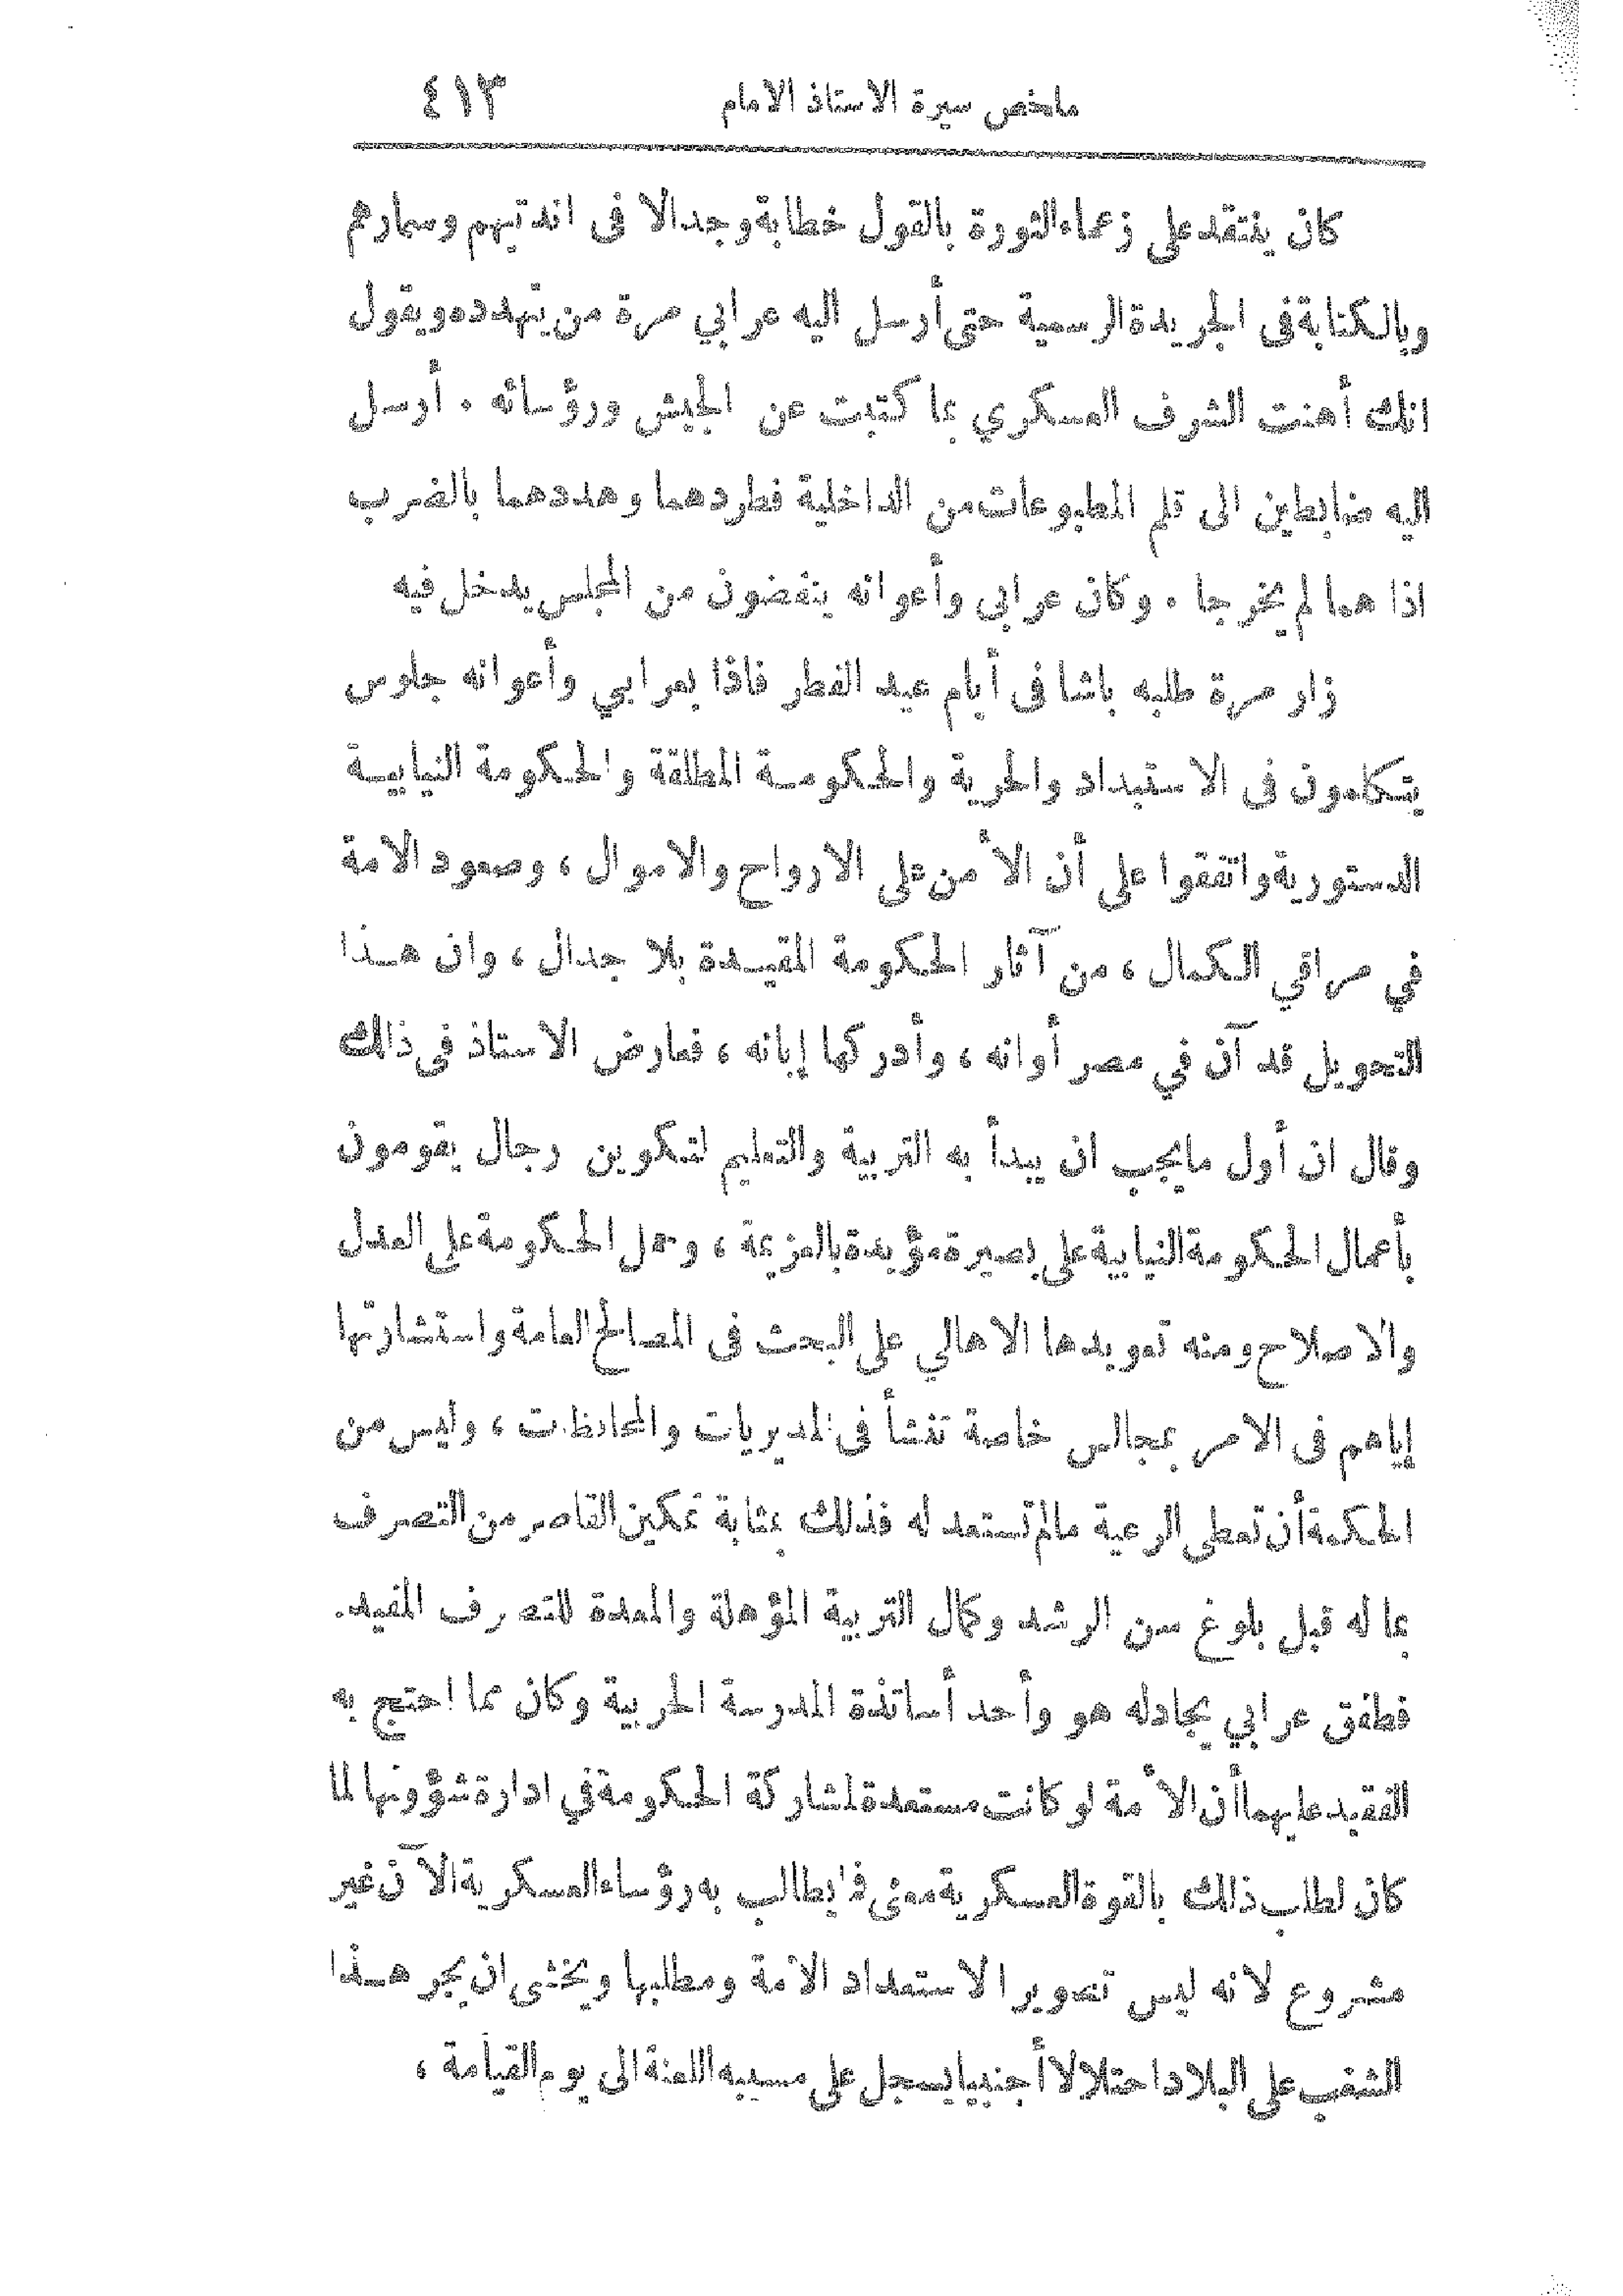 ملخص سيرة الاستاذ الامام ٤١٣
كان ينتقد على زعماء الثورة بالقول خطابة وجدالا فى انديتهم وسمارهم
وبالكتابة فى الجريدة الرسمية حتى أرسل اليه عرابي مرة من يتهدده ويقول
انك أهنت الشرف العسكري بما كتبت عن الجيش ورؤسائه . أرسل
اليه ضابطين الى قلم المطبوعات من الداخلية فطردهما وهددهما بالضرب
اذا هما لم يخرجا . وكان عرابي وأعوانه ينفضون من المجلس يدخل فيه
زار مرة طلبه باشا فى أيام عيد الفطر فاذا بعرابي وأعوانه جلوس
يتكلمون فى الاستبداد والحرية والحكومة المطلقة والحكومة النيابية
الدستورية واتفقوا على أن الأمن على الارواح والاموال ، وصعود الامة
في مراقي الكمال ، من آثار الحكومة المقيدة بلا جدال ، وان هذا
التحويل قد آن في مصر أوانه ، وأدركها إبانه ، فعارض الاستاذ فى ذالك
وقال ان أول مايجب ان يبدأ به التربية والتعليم لتكوين رجال يقومون
بأعمال الحكومة النيابية على بصيرة مؤيدة بالعزيمة ، وحمل الحكومة على العدل
والاصلاح ومنه تعويدها الاهالي على البحث فى المصالح العامة واستشارتها
إياهم فى الامر بمجالس خاصة تنشأ فى المديريات والمحافظات ، وليس من
الحكمة أن تعطى الرعية مالم تستعد له فذلك بمثابة تمكين القاصر من التصرف
بما له قبل بلوغ سن الرشد وكمال التربية المؤهلة والمعدة للتصرف المفيد.
فطفق عرابي يجادله هو وأحد أساتذة المدرسة الحربية وكان مما احتج به
الفقيد عليهما أن الأمة لو كانت مستعدة لمشاركة الحكومة في ادارة شؤونها لما
كان لطلب ذلك بالقوة العسكرية معنى فما يطالب به رؤساء العسكرية الآن غير
مشروع لانه ليس تصويرا لاستعداد الامة ومطلبها ويخشى ان يجر هذا
الشغب على البلاد احتلالا أجنبيا يسجل على مسببه اللعنة الى يوم القيامة ،